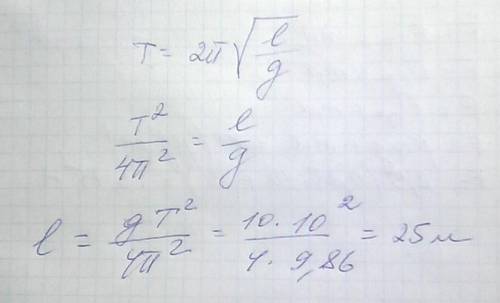 T = 2π√(l/g)
T²/4π² = l/g
l = gT²/4π² = 10·10²/4·9,86 = 25м